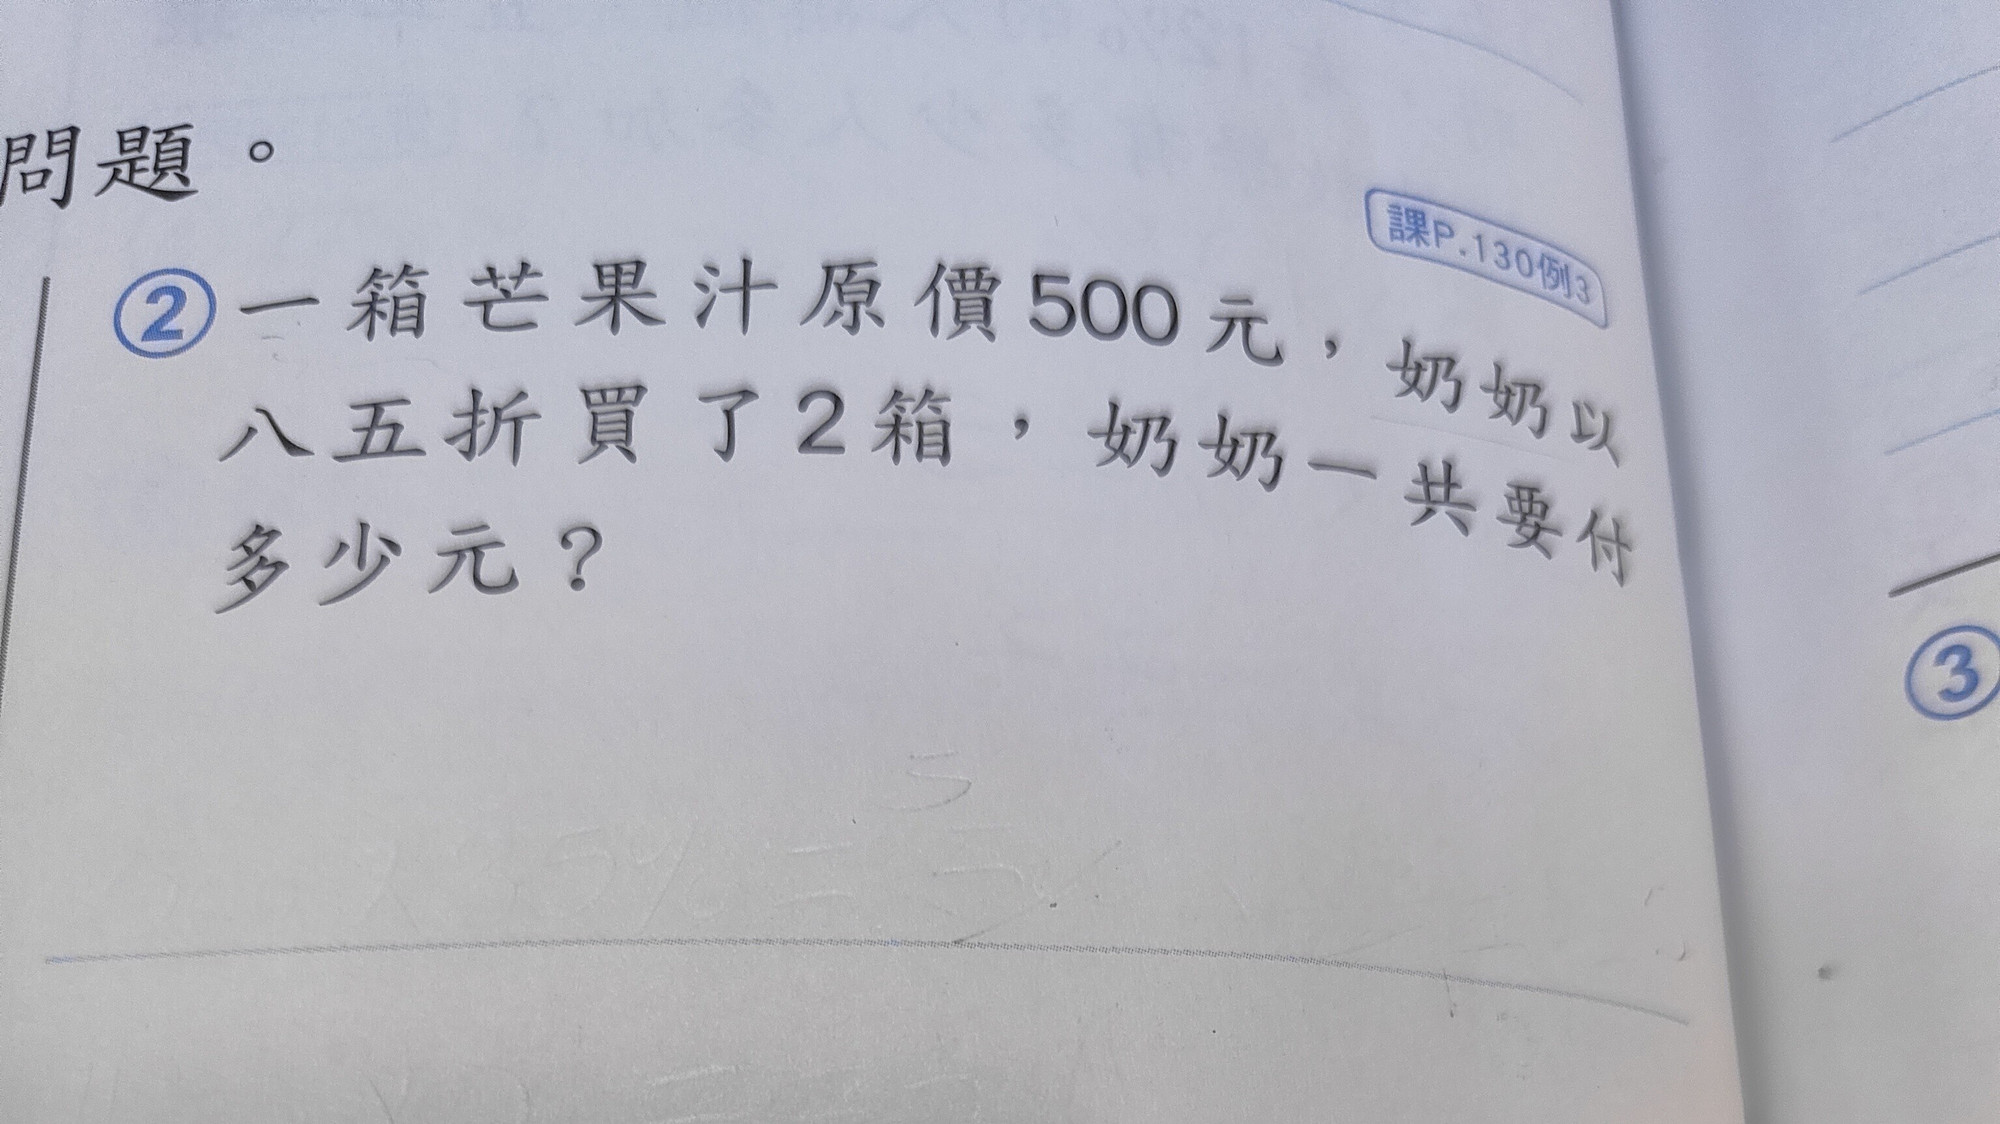 問題。
課P.130例3
② 一箱芒果汁原價500元，奶奶以
八五折買了2箱，奶奶一共要付
多少元？
③